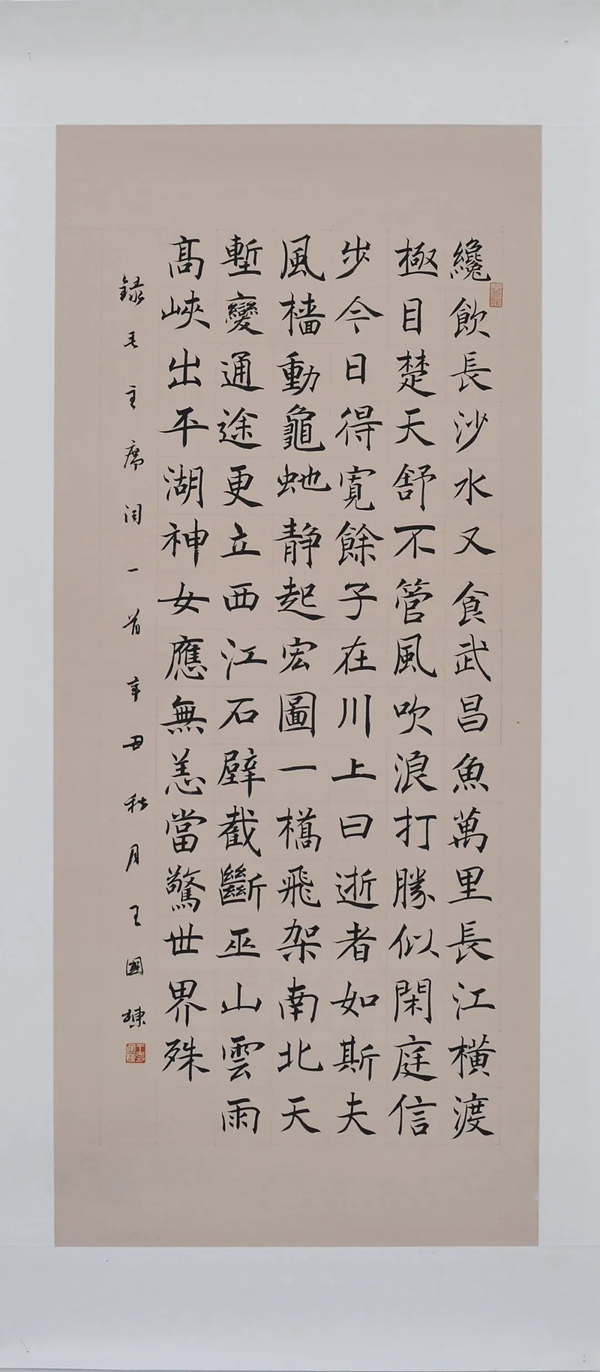 纔飲長沙水又食武昌魚萬里長江橫渡
極目楚天舒不管風吹浪打勝似閑庭信
步今日得寬餘子在川上曰逝者如斯夫
風檣動龜虵静起宏圖一橋飛架南北天
塹變通途更立西江石壁截斷巫山雲雨
高峽出平湖神女應無恙當驚世界殊
録毛主席词一首辛丑秋月王國棟